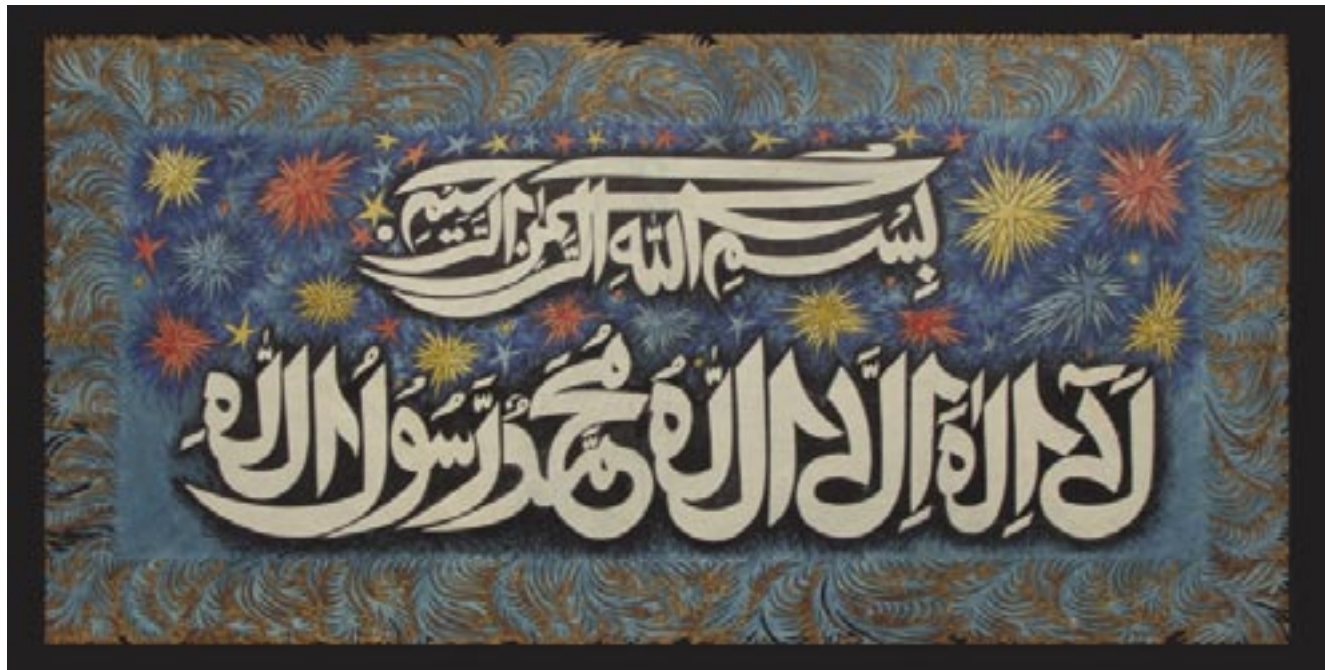 بِسْمِ اللهِ الرَّحْمٰنِ الرَّحِيْمِ
لَآ اِلٰهَ اِلَّا اللّٰهُ مُحَمَّدٌ رَّسُوْلُ اللّٰهِ